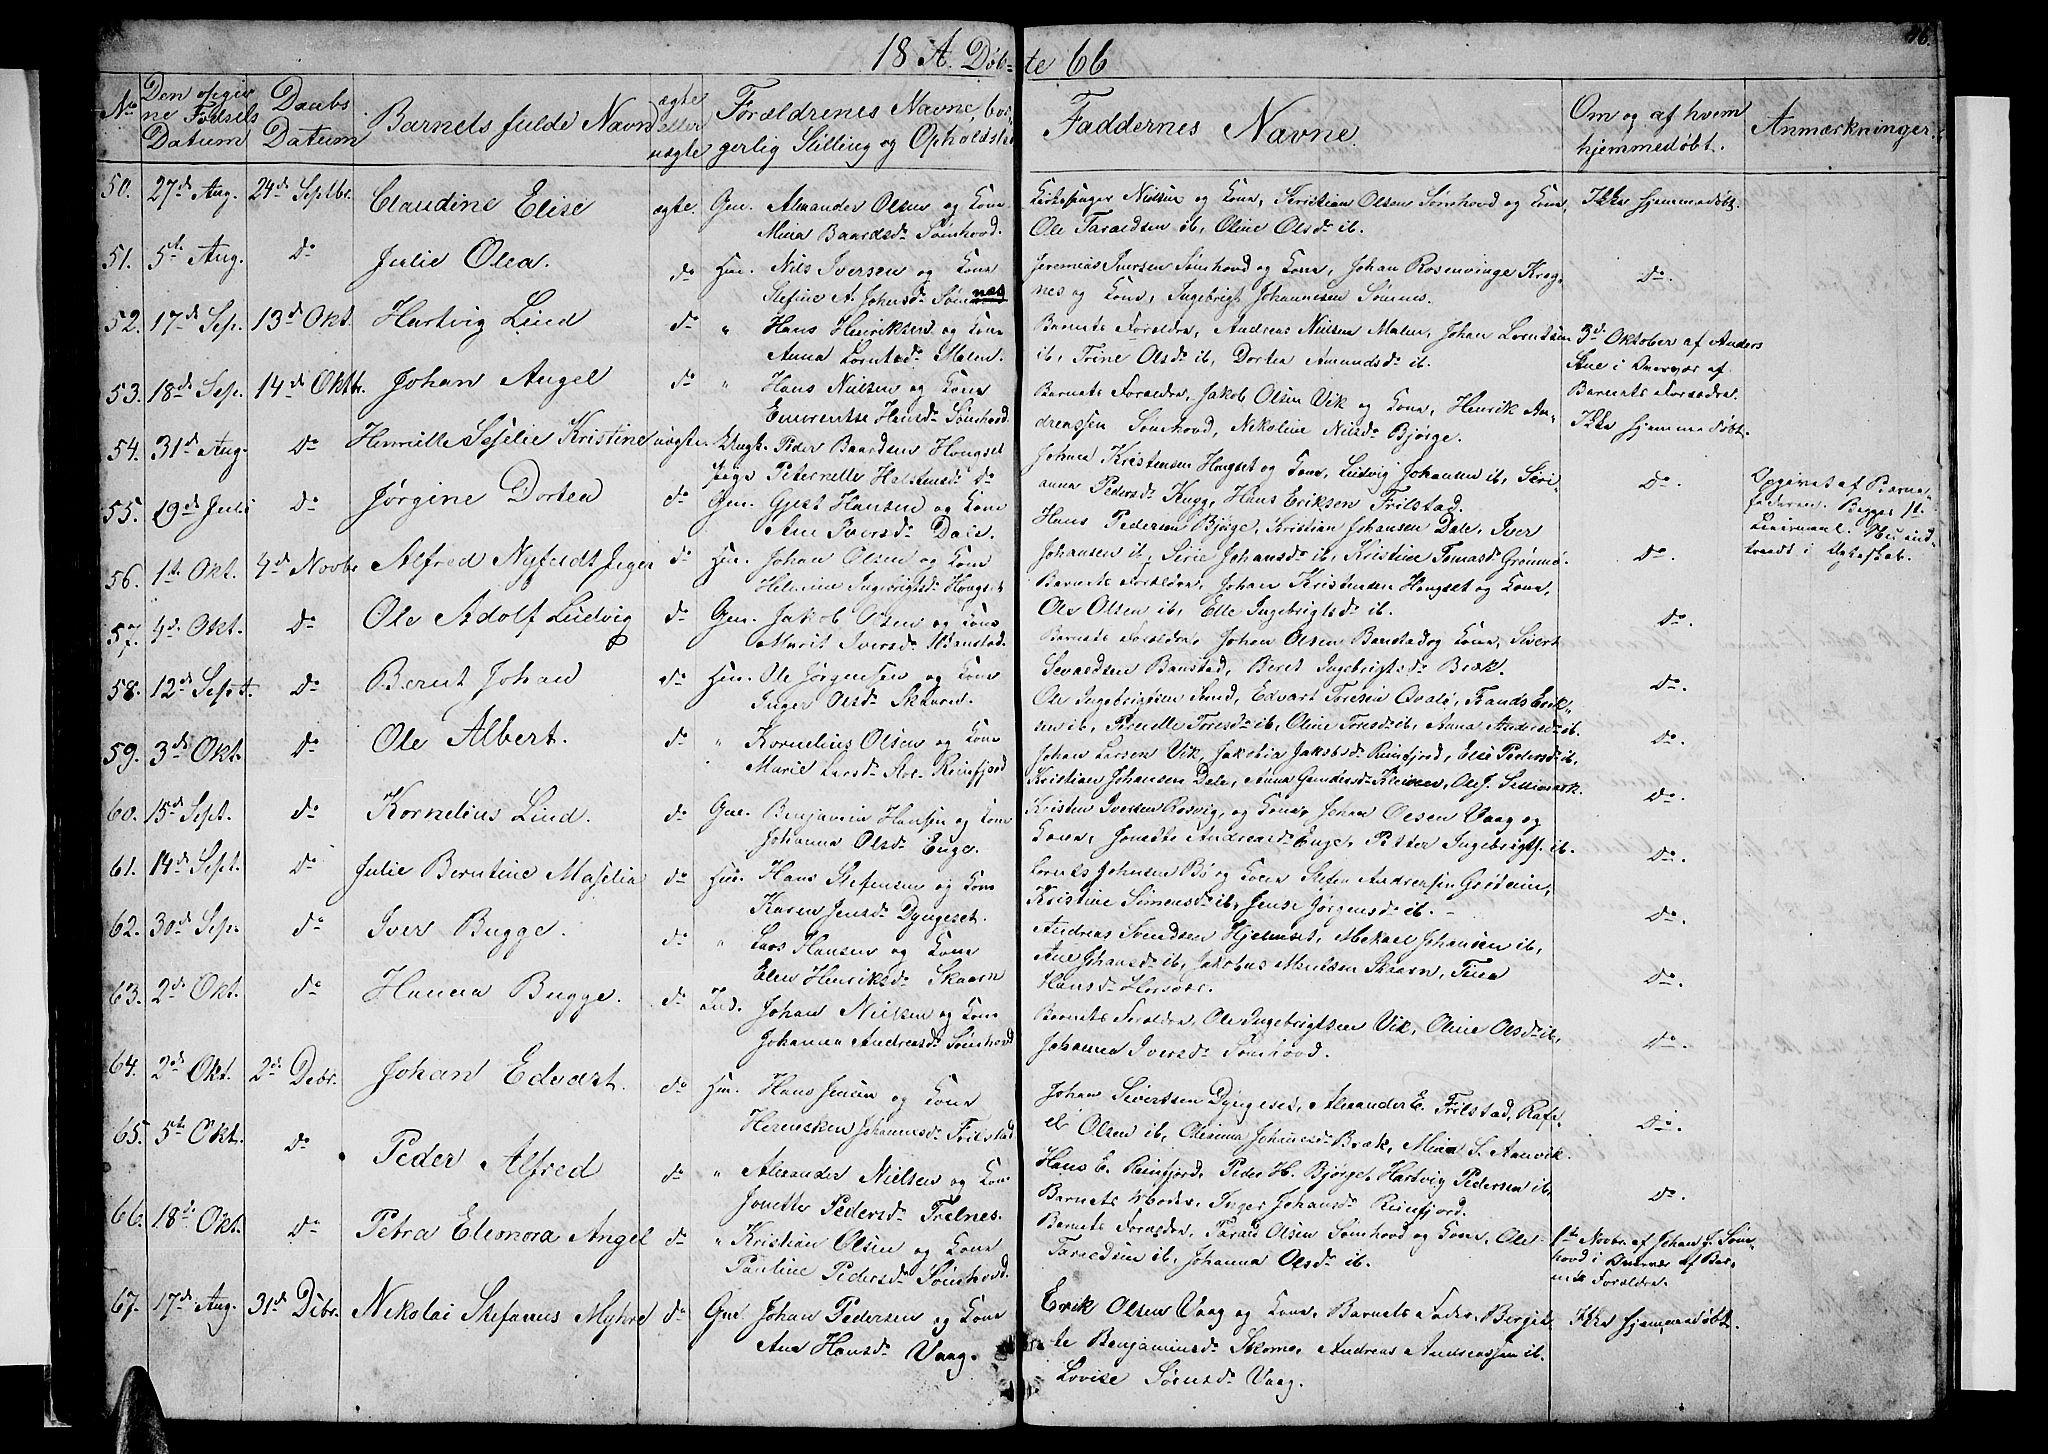 18 A. Døb- te 66
No
Den opgiv
ne Fødsels
Datum
Daabs
Datum
Barnets fulde Navn
ægte
eller
uægte
Forældrenes Navne, bor
gerlig Stilling og Opholdsste
Faddernes Navne.
Om og af hvem
hjemmedøbt.
Anmærkninger.
50. 27de Aug. 24de Septbr. Claudine Elise ægte. Gm. Alexander Olsen og Kone
Mina Baardsdr Sømhovd.
Kirkesanger Nielsen og Kone, Kristian Olsen Sømhovd og Kone,
Ole Taraldsen ib, Oline Olsdr ib.
Ikke hjemmedøbt.
51. 5te Aug. do Julie Olea. do Hm. Nils Iversen og Kone
Stefine A. Johnsdr Sømnæs
Jeremias Iversen Sømhovd og Kone, Johan Rosenvinge Krog-
nes og Kone, Ingebrigt Johannesen Sømnes.
do.
52. 17de Sep. 13de Okt. Hartvig Lind do " Hans Henriksen og Kone
Anna Lorntsdr Malen.
Barnets Forældre, Andreas Nielsen Malen, Johan Lorndtsen
ib, Trine Olsdr ib, Dortea Amundsdr ib.
3de Oktober af Anders
Barnets Forældre.
53. 18de Sep. 14de Oktbr. Johan Angel do " Hans Nielsen og Kone
Emerentse Hansdr Sømhovd.
Barnets Forældre, Jakob Olsen Vik og Kone, Henrik An-
dreassen Sømhovd, Nikoline Nilsdr Bjørge.
Ikke hjemmedøbt.
54. 31de Aug. do Henrikke Seselie Kristine uægte. Ungk. Peder Baardsen Hongset
Pige Peternelle Halstensdr do
Johan Kristensen Hongset og Kone, Ludvig Johansen ib, Seri-
anna Pedersdr Kugg, Hans Eriksen Frilstad.
do.
Opgivet af Barne-
faderen. Begges 1te
Leiermaal. Nu ind-
traadt i Ægteskab.
55. 19de Juli do Jørgine Dortea do Gm. Gjert Hansen og Kone
Ane Iversdr Dale.
Hans Pedersen Bjørge, Kristian Johansen Dale, Iver
Johansen ib, Sirie Johansdr ib, Kristine Tomasdr Grønmo.
do.
56. 1te Okt. 4de Novbr Alfred Nyfeldt Inger do Hm. Johan Olsen og Kone
Helmine Ingebrigtsdr Hongset
Barnets Forældre, Johan Kristensen Hongset og Kone,
Ole Olsen ib, Elle Ingebrigtsdr ib.
do.
57. 4de Okt. do Ole Adolf Ludvig do Gm. Jakob Olsen og Kone
Marit Iversdr Banstad.
Barnets Forældre, Johan Olsen Banstad og Kone, Sivert
Sevaldsen Banstad, Beret Ingebrigtsdr Bræk.
do.
58. 12de Sept. do Bernt Johan do Hm. Ole Jørgensen og Kone
Inger Olsdr Skauren.
Ole Ingebrigtsen Sund, Edvart Toresen Qvalø, Frands Erik-
sen ib, Pernille Toresdr ib, Oline Toresdr ib, Anna Andersdr ib.
do.
59. 3de Okt. do Ole Albert. do " Kornelius Olsen og Kone
Marie Larsdr Reinfjord
Johan Larsen Vik, Jakobia Jakobsdr Reinfjord, Else Pedersdr ib,
Kristian Johansen Dale, Anna Gundersdr Kleiven, Ole J.
do.
60. 15de Sept. do Kornelius Lind. do Gm. Benjamin Hansen og Kone
Johanna Olsdr Enge.
Kristen Iversen Rosvig, og Kone, Johan Olsen Vaag og
Kone, Jonette Andreasdr Enge, Petter Ingebrigts. ib.
do.
61. 14de Sept. do Julie Berntine Maselia do Hm. Hans Stefensen og Kone
Karen Jensdr Dyngeset.
Lornts Johnsen Bø og Kone Stefen Andreasen Grøteim,
Kristine Simonsdr ib, Jense Jørgensdr ib.
do.
62. 30de Sep. do Iver Bugge. do " Lars Hansen og Kone
Elen Henriksdr Skaarn
Andreas Svendsen Hjelmset, Mekael Johansen ib,
Ane Johansdr ib, Jakobus Skaarn, Tina
Hansdr Horsvær.
do.
63. 2de Okt. do Hanna Bugge. do Ind. Johan Nielsen og Kone
Johanna Andreasdr Sømhovd
Barnets Forældre, Ole Ingebrigtsen Vik, Oline Olsdr ib,
Johanna Iversdr Sømhovd.
do.
64. 2de Okt. 2de Debr. Johan Edvart. do Hm. Hans Jensen og Kone
Johannesdr Frilstad
Johan Sivertsen Dyngeset, Alexander E. Frilstad, Rafa-
el Olsen ib, Olianna Johnsdr Bræk, Mina S. Aanvik.
do.
65. 5te Okt. do Peder Alfred do " Alexander Nielsen og Kone
Jonette Pedersdr Trelnes.
Hans E. Reinfjord, Peder H. Bjørge, Hartvig Pedersen ib,
Barnets Moder, Inger Johansdr Reinfjord.
do.
66. 18de Okt. do Petra Eleonora Angel do " Kristian Olsen og Kone
Pauline Pedersdr Sømhovd.
Barnets Forældre, Tarald Olsen Sømhovd og Kone, Ole
Taraldsen ib, Johanna Olsdr ib.
1te Novbr. af Johan J. Søm-
hovd i Overvær af Bar-
nets Forældre.
67. 17de Aug. 31de Debr. Nikolai Stefanus Myhre do Gm. Johan Pedersen og Kone
Ane Hansdr Vaag.
Erik Olsen Vaag og Kone, Barnets Fader, Bergit-
te Benjaminsdr Skomo, Andreas Andreassen ib.
Lovise Sørensdr Vaag.
Ikke hjemmedøbt.